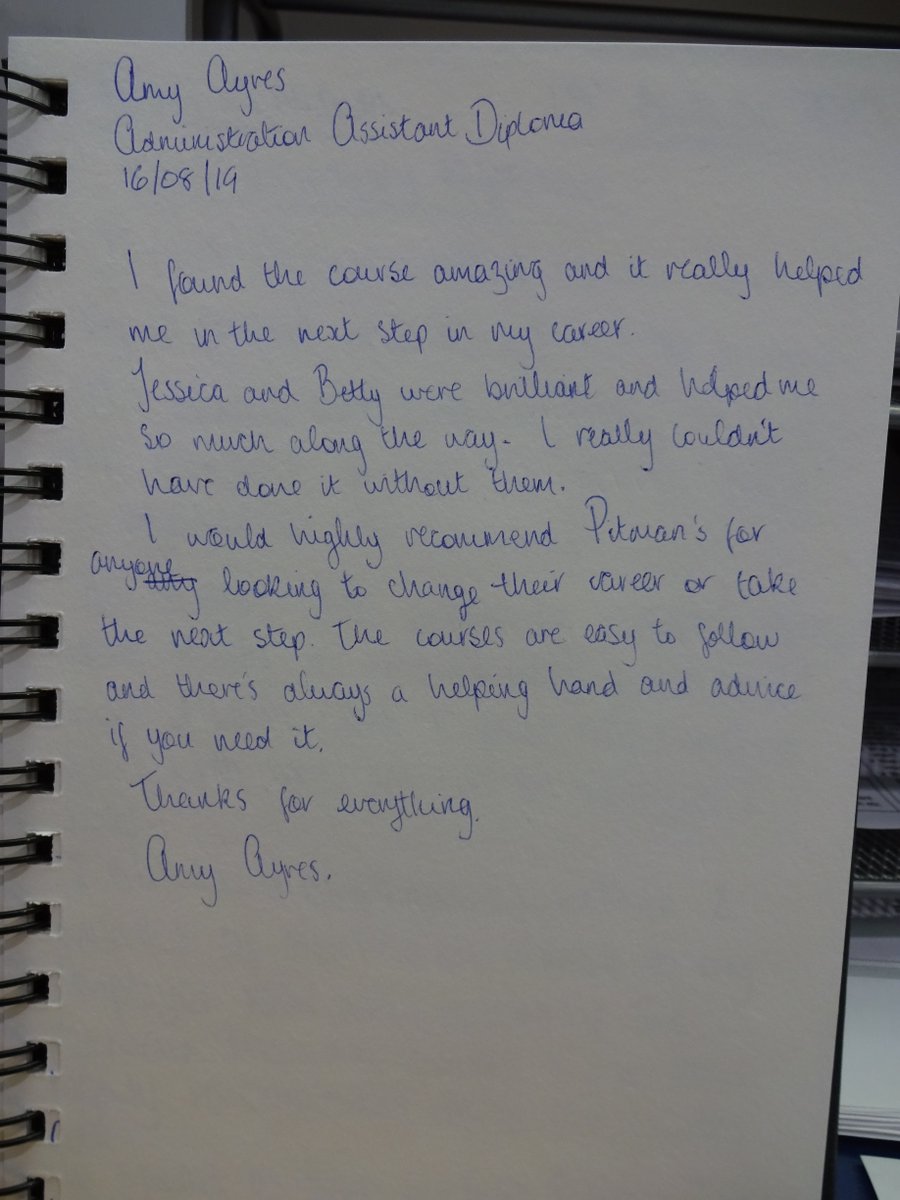 Amy Ayres
Administration Assistant Diploma
16/08/19
I found the course amazing and it really helped
me in the next step in my career.
Jessica and Betty were brilliant and helped me
so much along the way. I really couldn't
have done it without them.
I would highly recommend Pitman's for
anyone looking to change their career or take
the next step. The courses are easy to follow
and there's always a helping hand and advice
if you need it.
Thanks for everything.
Amy Ayres.